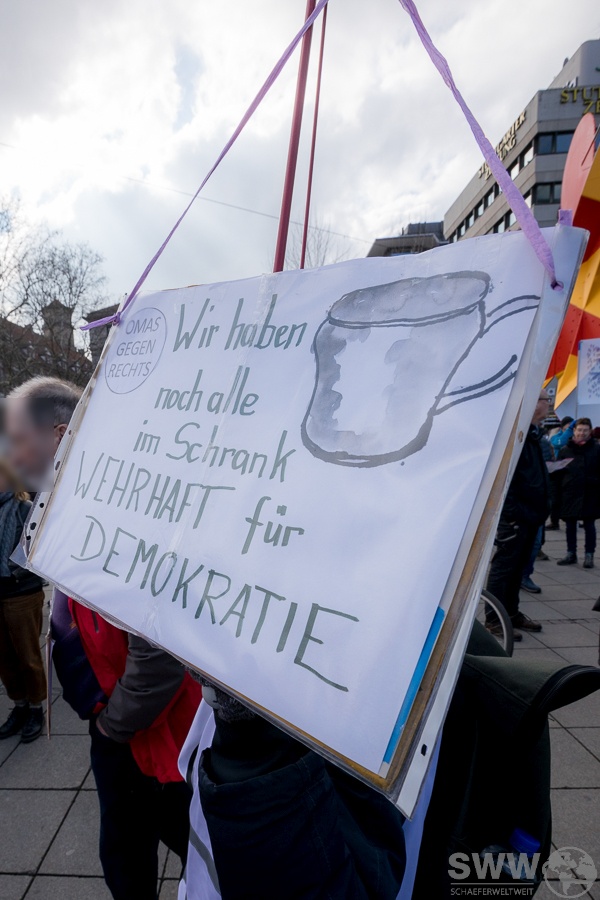 OMAS
GEGEN
RECHTS
Wir haben
noch alle
im Schrank
WEHRHAFT für
DEMOKRATIE
SWW
SCHAEFERWELTWEIT